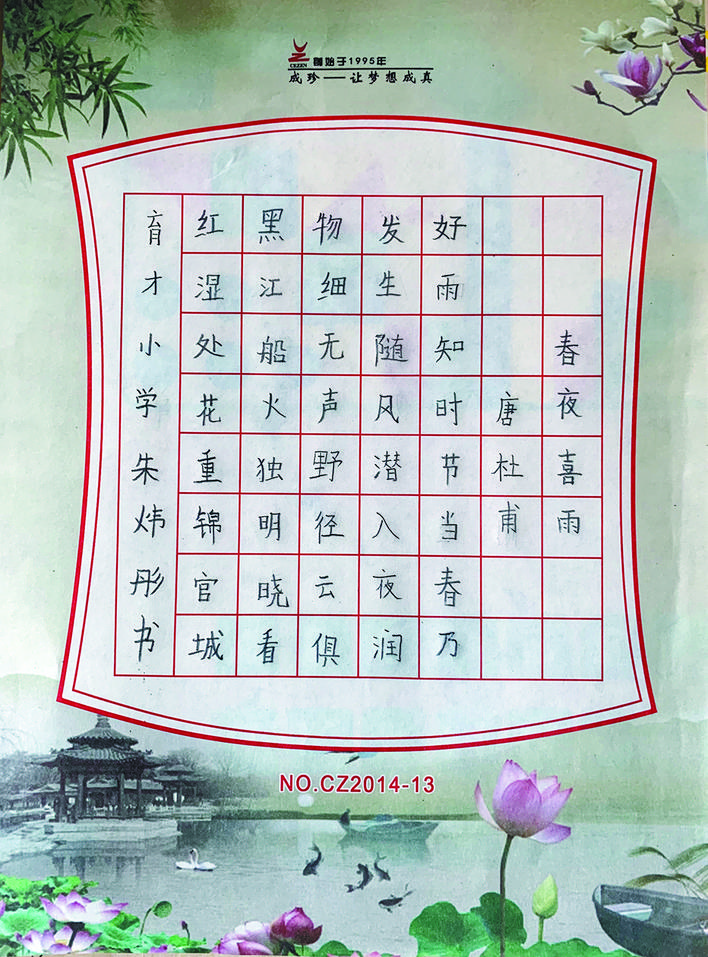 創始于1995年
成珍——让梦想成真
春夜喜雨
唐杜甫
好雨知时节当春乃
发生随风潜入夜润
物细无声野径云俱
黑江船火独明晓看
红湿处花重锦官城
育才小学朱炜彤书
NO.CZ2014-13